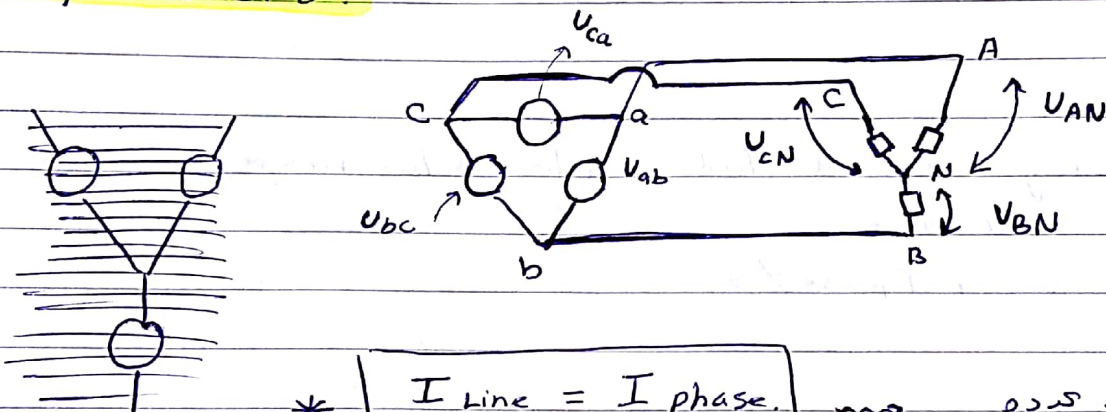 U_ca
A
C
a
C
U_AN
U_CN
N
U_ab
U_bc
U_BN
b
B
* I Line = I phase.